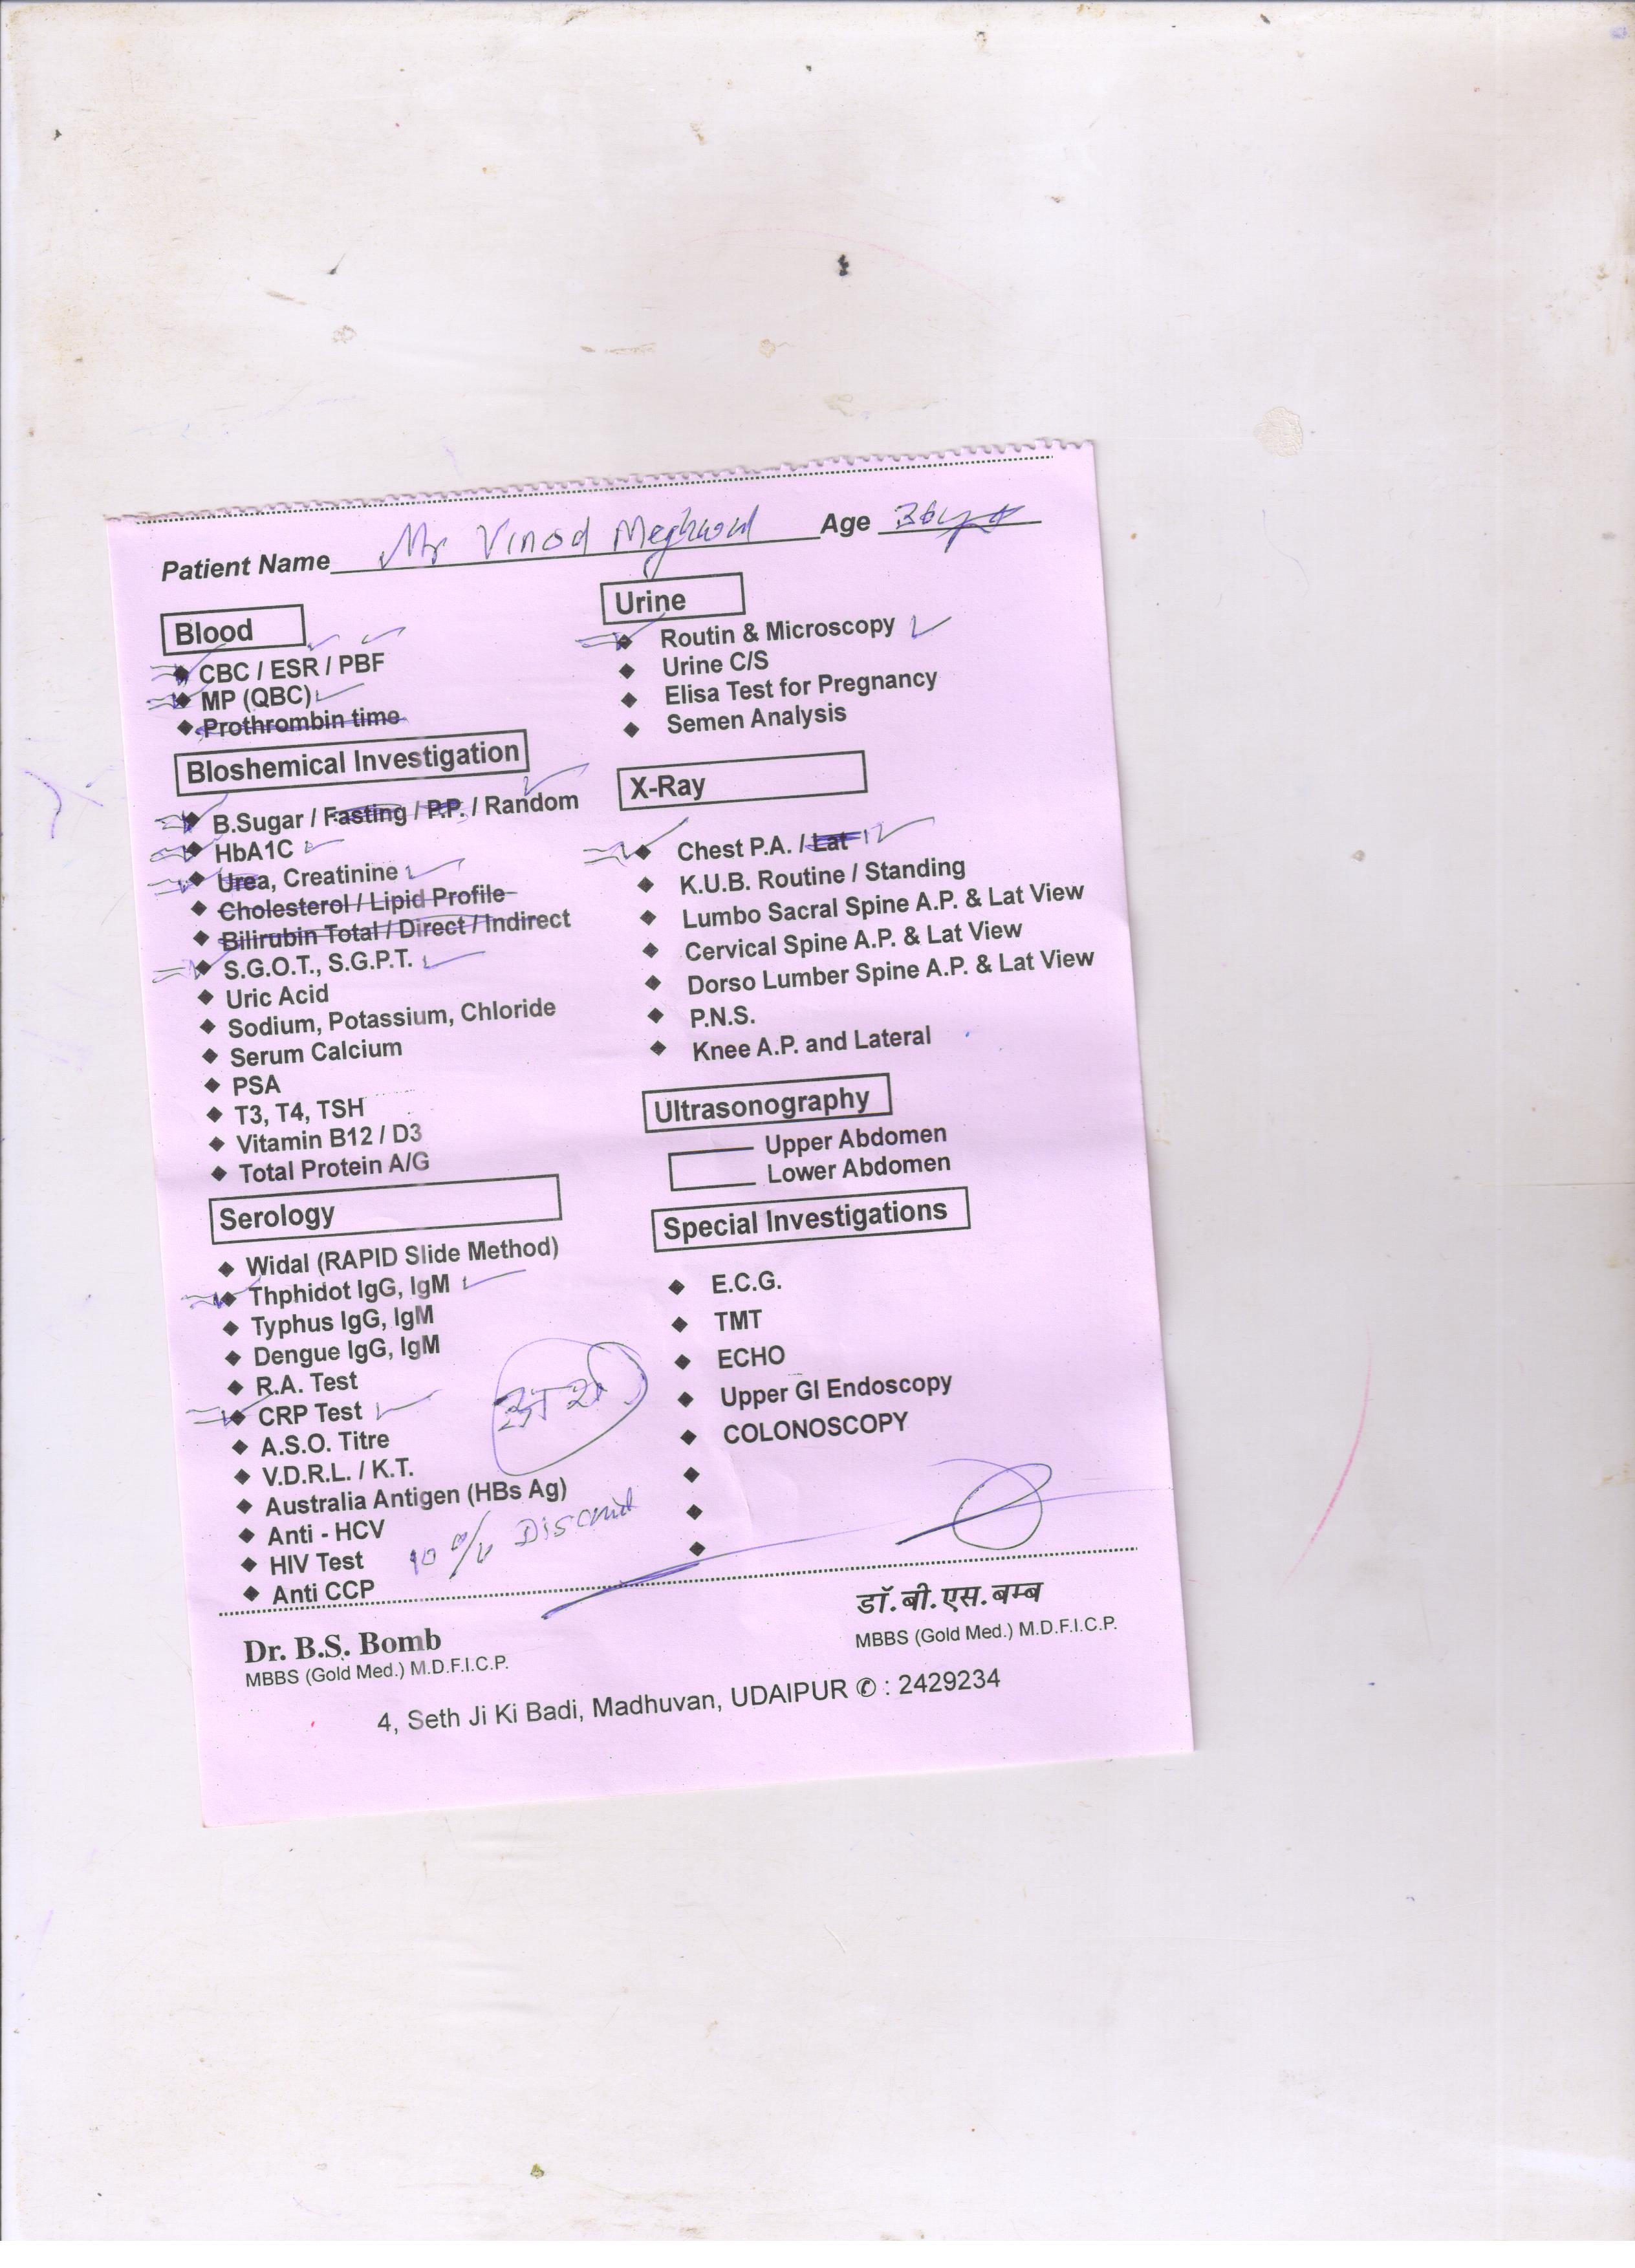 Patient Name Mr Vinod Meghwal Age 36 yrs
Blood
CBC / ESR / PBF
MP (QBC)
Prothrombin time
Bloshemical Investigation
B.Sugar / Fasting / P.P. / Random
HbA1C
Urea, Creatinine
Cholesterol / Lipid Profile
Bilirubin Total / Direct / Indirect
S.G.O.T., S.G.P.T.
Uric Acid
Sodium, Potassium, Chloride
Serum Calcium
PSA
T3, T4, TSH
Vitamin B12 / D3
Total Protein A/G
Serology
Widal (RAPID Slide Method)
Thphidot IgG, IgM
Typhus IgG, IgM
Dengue IgG, IgM
R.A. Test
CRP Test
A.S.O. Titre
V.D.R.L. / K.T.
Australia Antigen (HBs Ag)
Anti - HCV
HIV Test
Anti CCP
10 %
Urine
Routin & Microscopy
Urine C/S
Elisa Test for Pregnancy
Semen Analysis
X-Ray
Chest P.A. / Lat
K.U.B. Routine / Standing
Lumbo Sacral Spine A.P. & Lat View
Cervical Spine A.P. & Lat View
Dorso Lumber Spine A.P. & Lat View
P.N.S.
Knee A.P. and Lateral
Ultrasonography
Upper Abdomen
Lower Abdomen
Special Investigations
E.C.G.
TMT
ECHO
Upper GI Endoscopy
COLONOSCOPY
Dr. B.S. Bomb
MBBS (Gold Med.) M.D.F.I.C.P.
डॉ. बी. एस. बम्ब
MBBS (Gold Med.) M.D.F.I.C.P.
4, Seth Ji Ki Badi, Madhuvan, UDAIPUR ✆ : 2429234